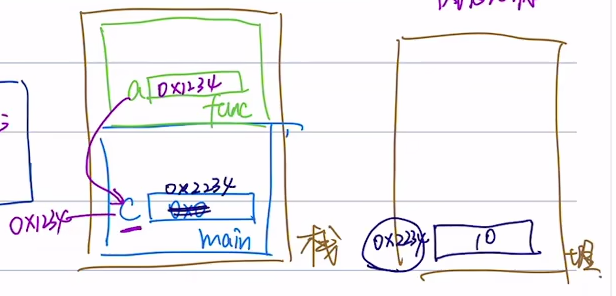 a 0x1234
func
0x2234
c 0x0
0x1234
main
栈
0x2234 10
堆